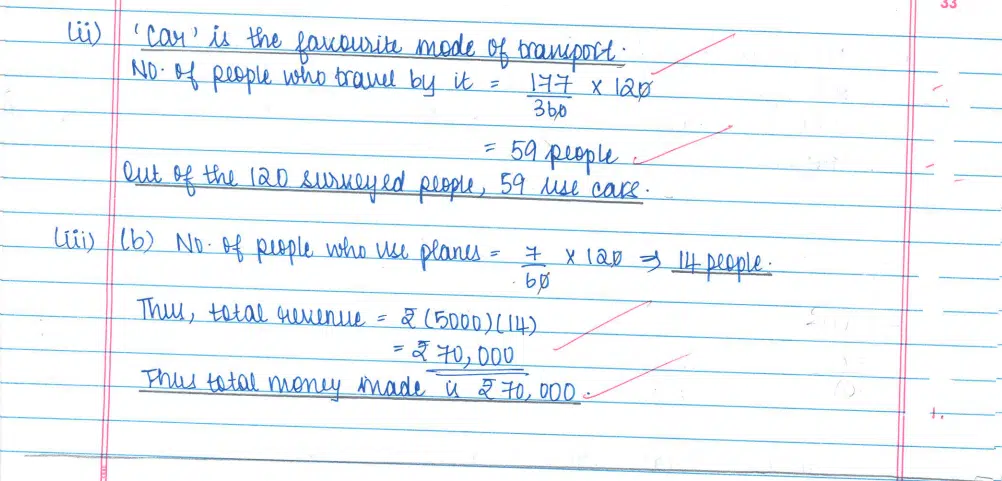 33
(ii) 'Car' is the favourite mode of transport.
No. of people who travel by it = 177/360 × 120
= 59 people
Out of the 120 surveyed people, 59 use cars.
(iii) (b) No. of people who use planes = 7/60 × 120 ⇒ 14 people.
Thus, total revenue = ₹(5000)(14)
= ₹70,000
Thus total money made is ₹70,000.